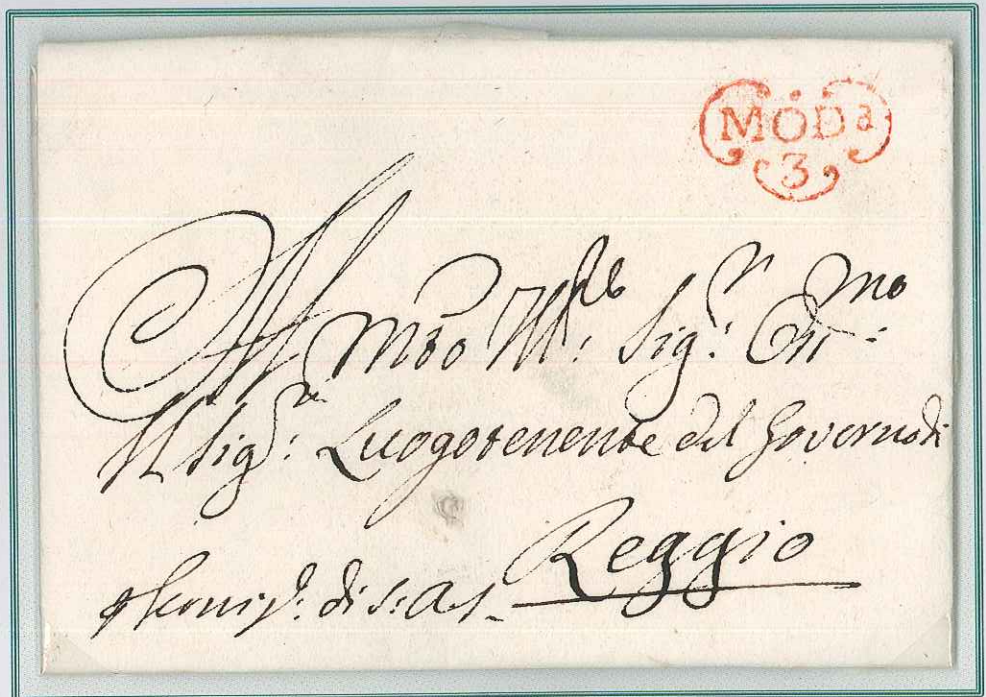 MODa
3
All Molto Ill.re Sig.r Oss.mo
Il Sig.r Luogotenente del Governo di
Reggio
di S: A S